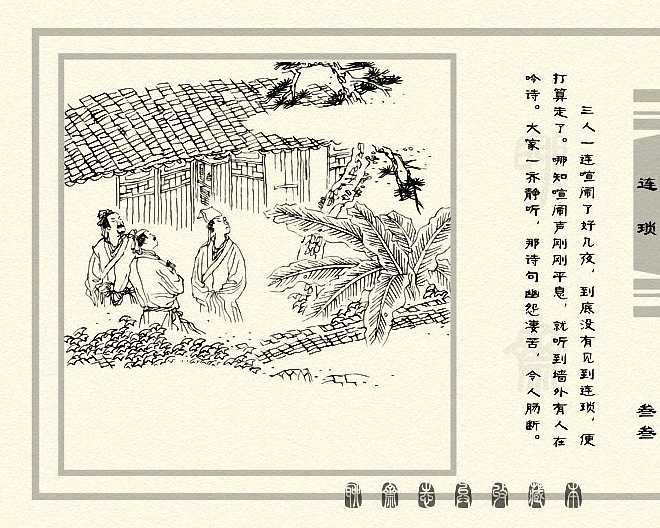 三人一连喧闹了好几夜，到底没有见到连琐，便
打算走了。哪知喧闹声刚刚平息，就听到墙外有人在
吟诗。大家一齐静听，那诗句幽怨凄苦，令人肠断。
连琐
叁叁